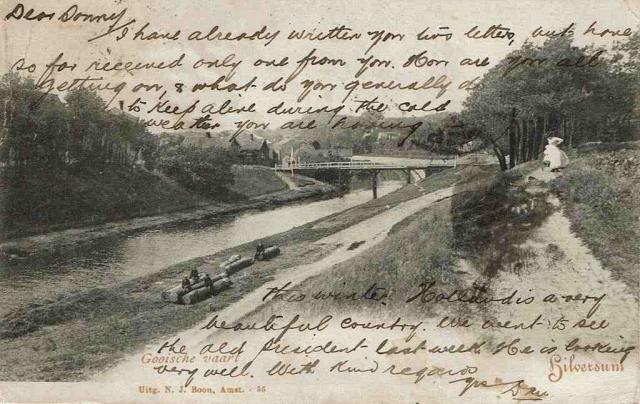 Dear Donny,
I have already written you two letters, but have
so far received only one from you. How are you all
getting on, & what do you generally do
to keep alive during the cold
weather you are having
this winter. Holland is a very
beautiful country. We went to see
the old president last week. He is looking
very well. With kind regards
yrs Dan
Gooische vaart
Hilversum
Uitg. N. J. Boon, Amst. - 56